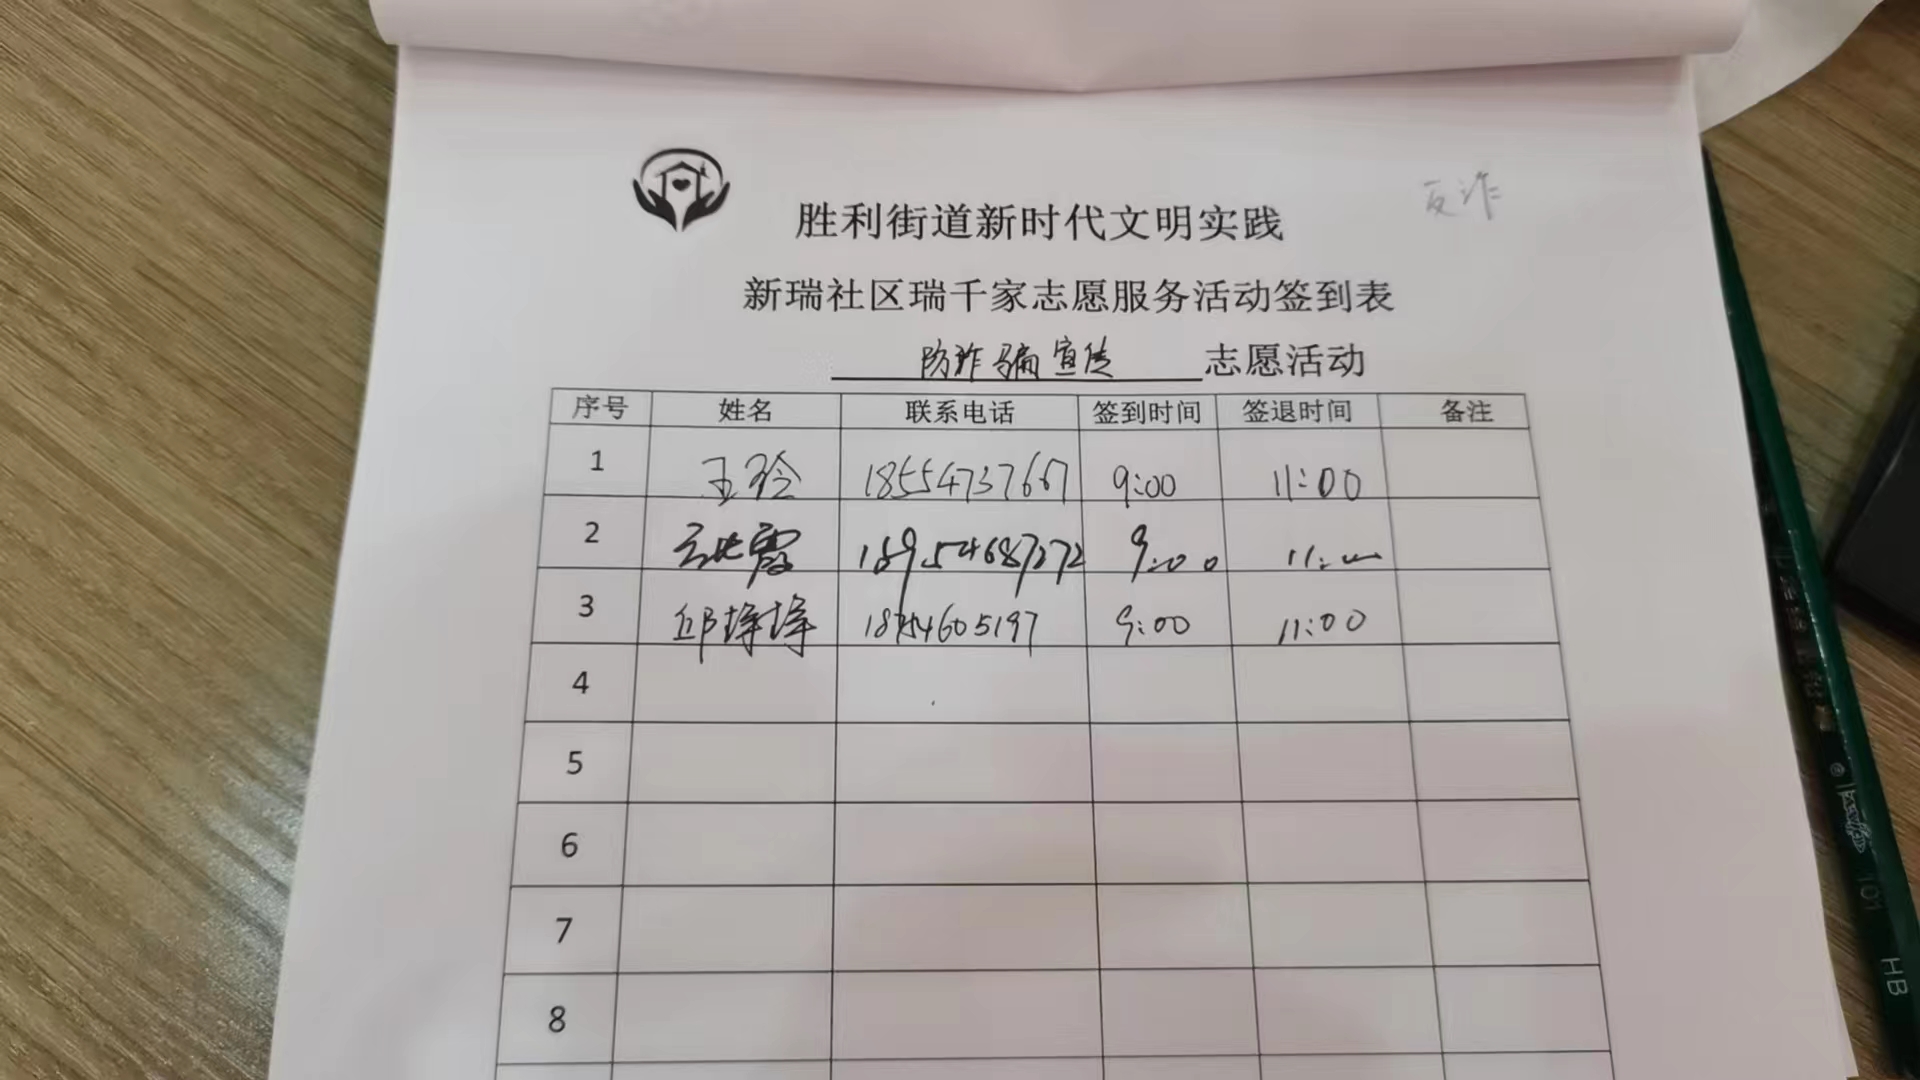 反诈
胜利街道新时代文明实践
新瑞社区瑞千家志愿服务活动签到表
防诈骗宣传 志愿活动
序号 姓名 联系电话 签到时间 签退时间 备注
1 王玲 18554737667 9:00 11:00
2 18954687272 9:00 11:00
3 邱 18754605197 9:00 11:00
4
5
6
7
8
HB
101